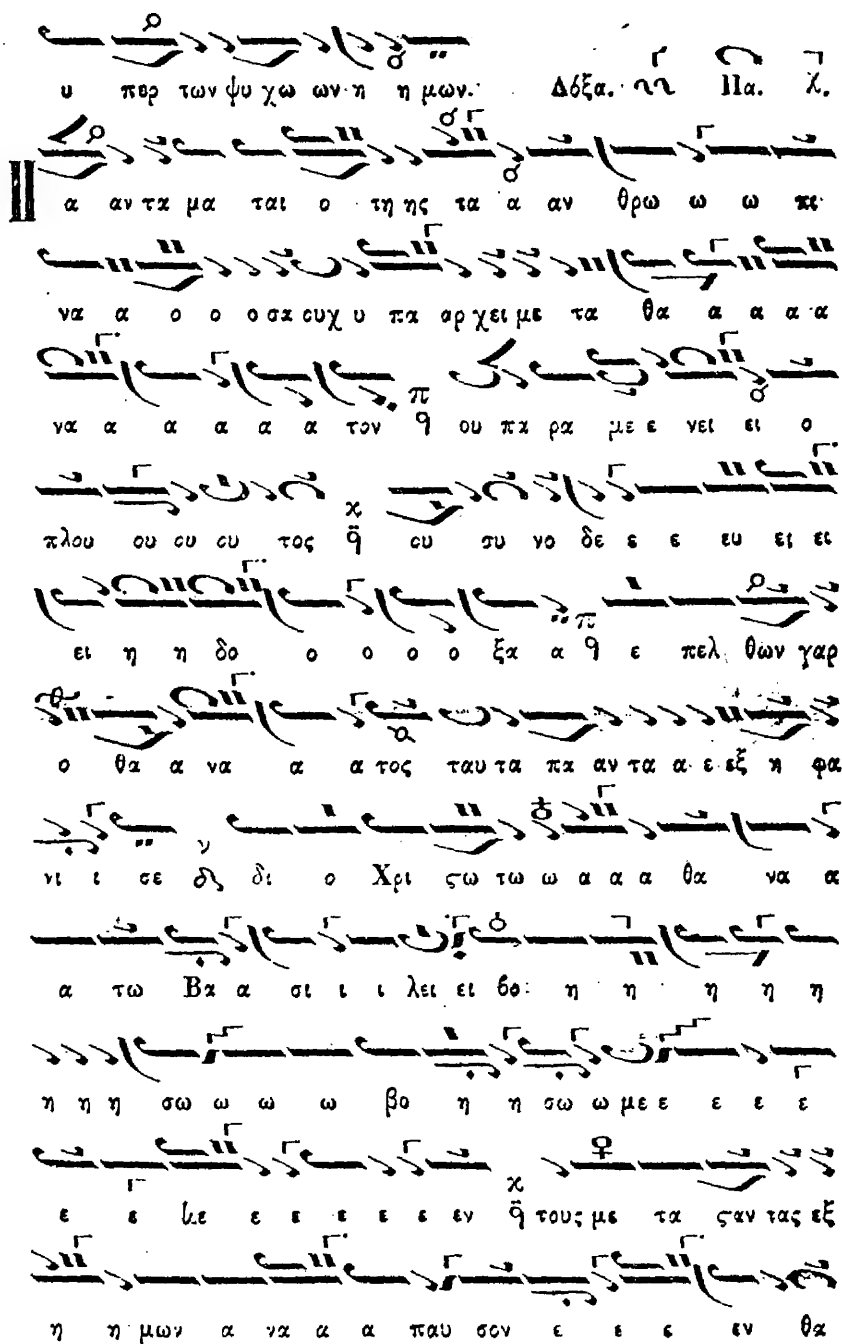 υ περ των ψυ χω ων η η μων. Δόξα. Πα. χ.
Π α αν τα μα ται ο τη ης τα α αν θρω ω ω πι
να α ο ο ο σα ουχ υ πα αρ χει με τα θα α α α α
να α α α α α τον π q ου πα ρα με ε νει ει ο
πλου ου ου ου τος χ q ου συ νο δε ε ε ευ ει ει
ει η η δο ο ο ο ο ξα α π q ε πελ θων γαρ
ο θα α να α α τος ταυ τα πα αν τα α ε εξ η φα
νι ι σε ν δι ο Χρι ςω τω ω α α α θα να α
α τω Βα α σι ι ι λει ει βο η η η η η
η η η σω ω ω ω βο η η σω ω με ε ε ε ε
ε ε κε ε ε ε ε ε εν χ q τους με τα ςαν τας εξ
η η μων α να α α παυ σον ε ε ε εν θα